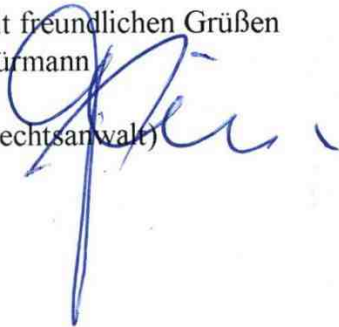 t freundlichen Grüßen
ürmann
echtsanwalt)